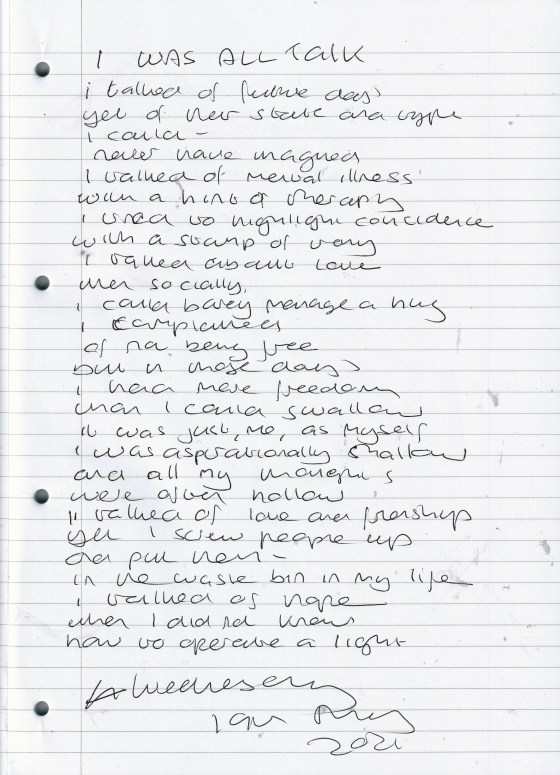 I WAS ALL TALK
i talked of future days
yet of her state and type
I could -
never have imagined
I talked of mental illness
with a hint of therapy
I used to highlight coincidence
with a stamp of irony
I talked about love
when socially,
I could barely manage a hug
I complained
of not being free
but in those days
I had more freedom
than I could swallow
it was just, me, as myself
I was aspirationally shallow
and all my thoughts
were often hollow
I talked of love and friendship
yet I screw people up
and put them -
in the waste bin in my life
I talked of hope
when I did not know
how to operate a light
Wednesday
Ian
2021